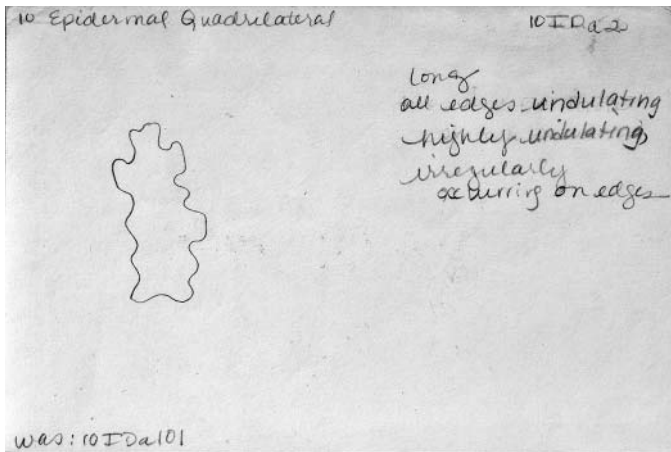 10 Epidermal Quadrilateral
10IDa2
long
all edges undulating
highly undulating
irregularly
occurring on edges
was: 10IDa101